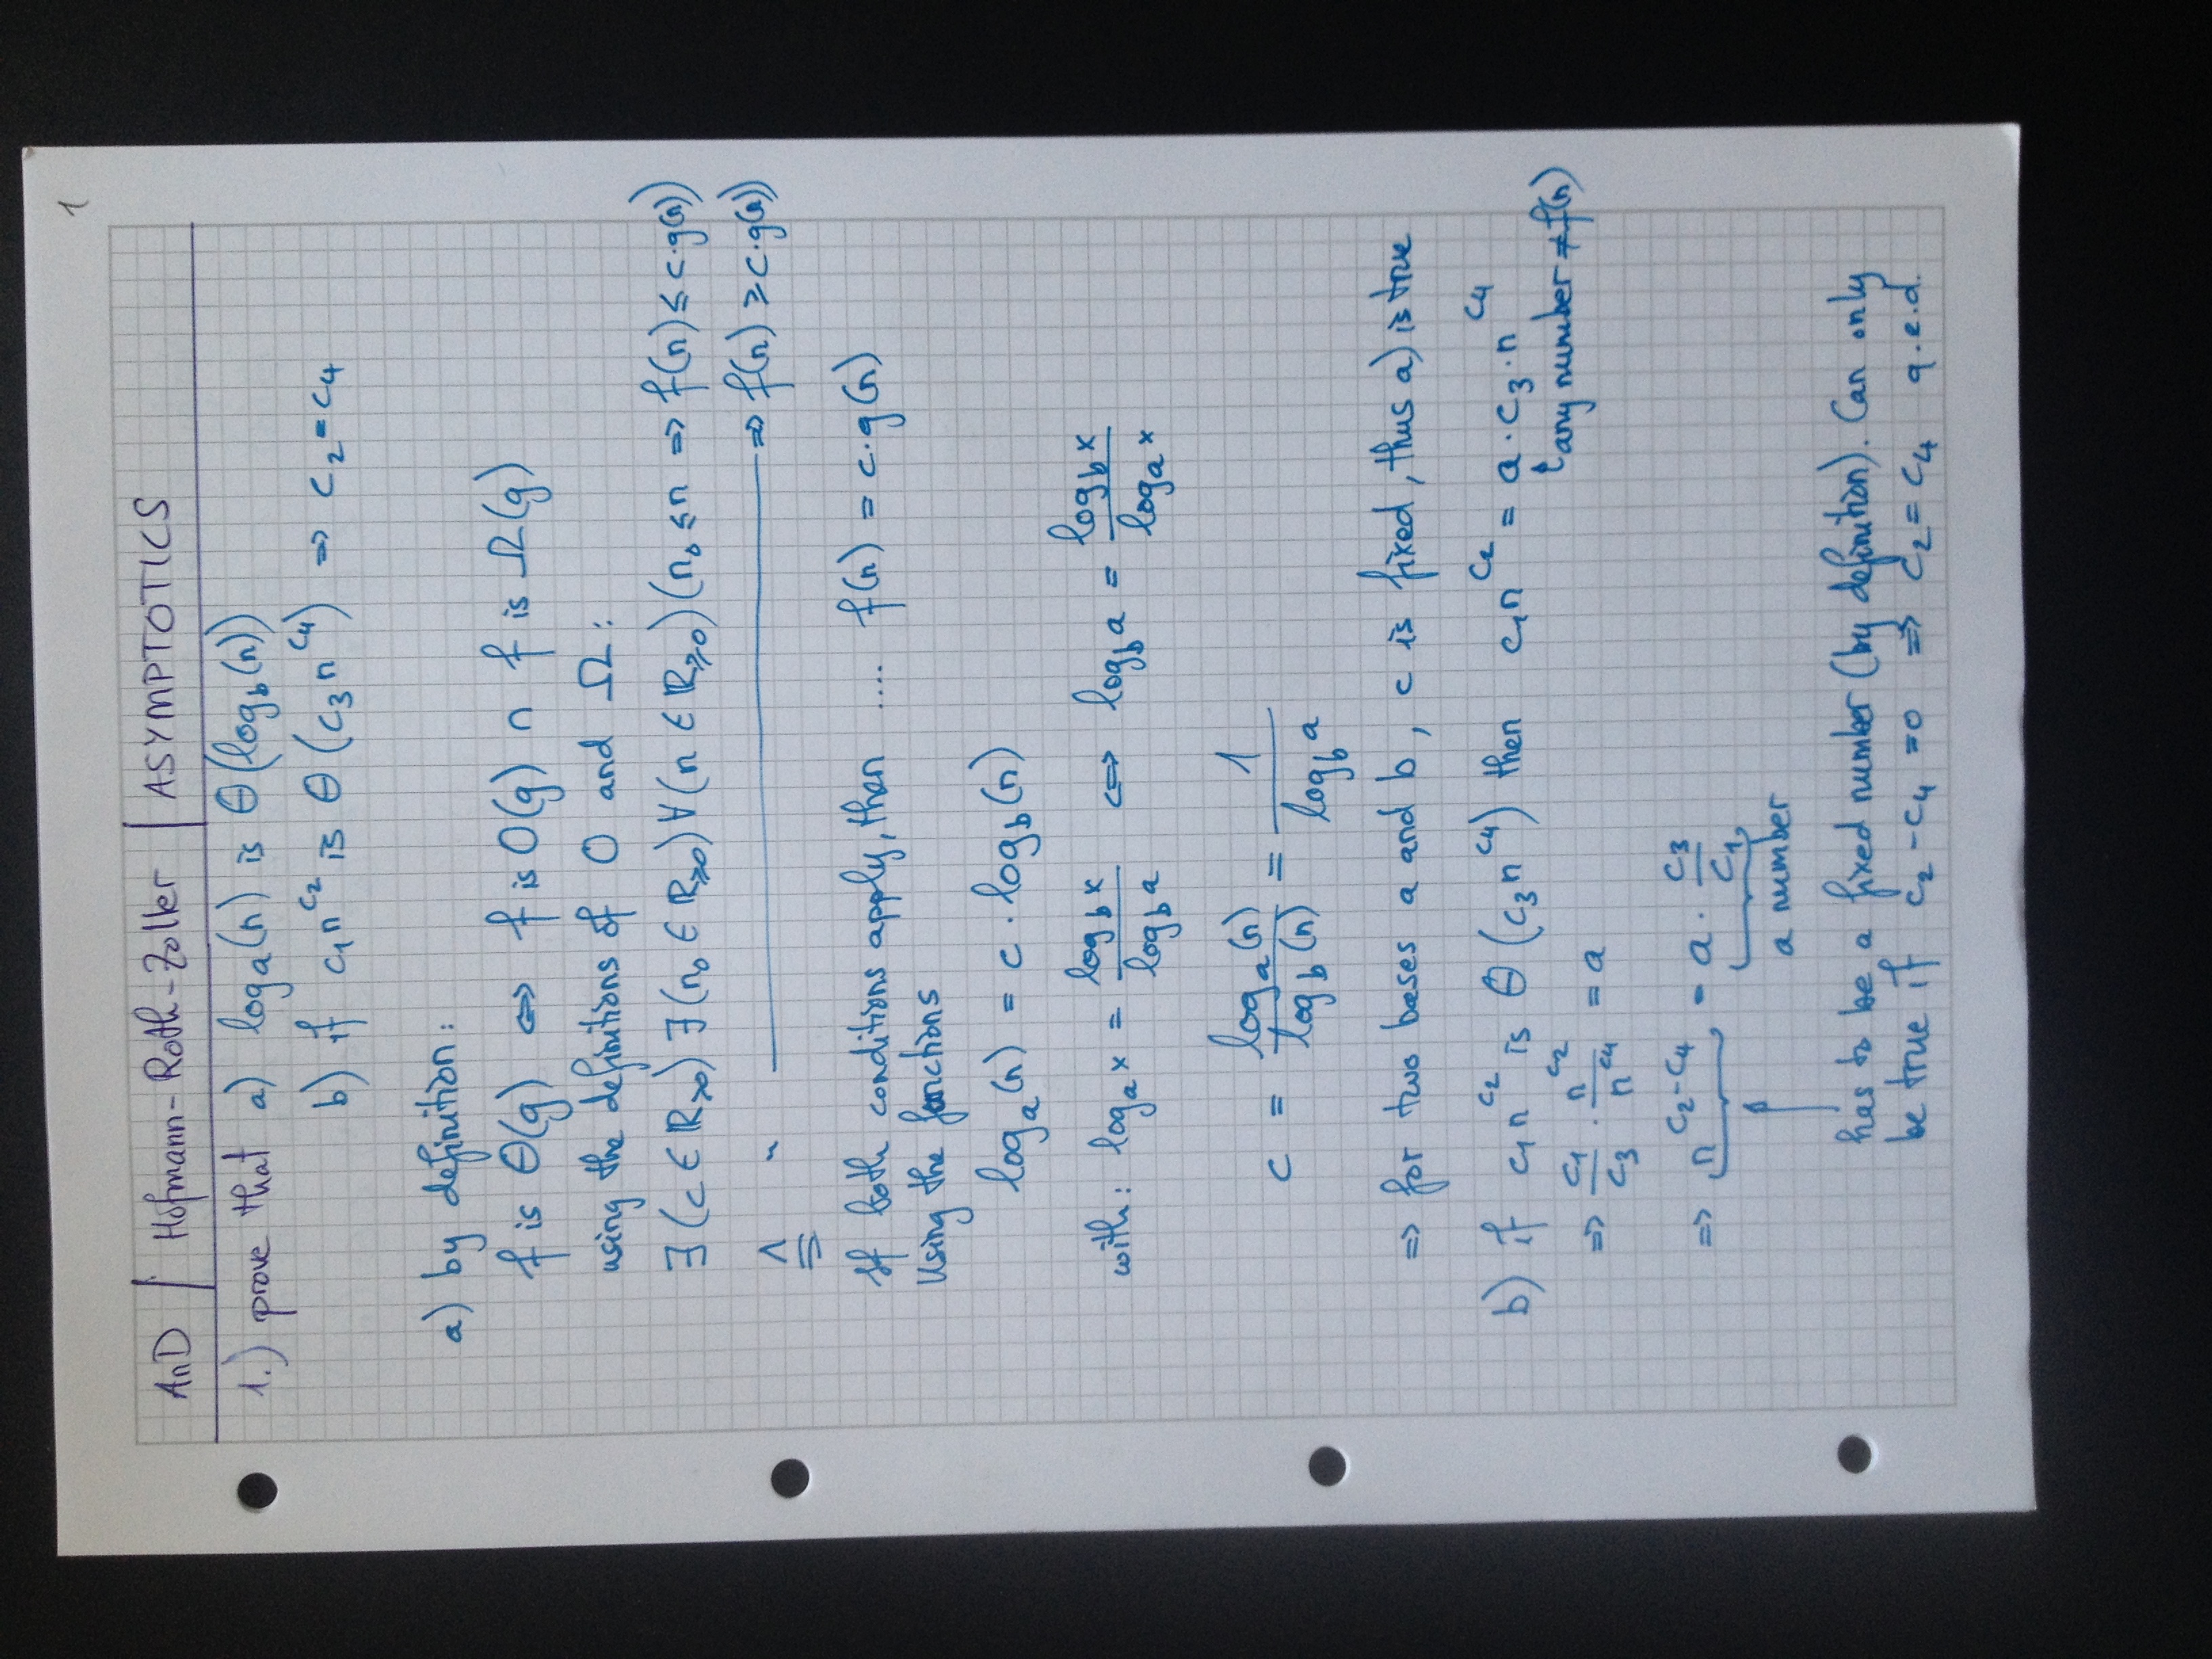 1
AnD | Hofmann-Roth-Zoller | ASYMPTOTICS
1.) prove that a) log_a(n) is Θ(log_b(n))
b) if c₁n^c₂ is Θ(c₃n^c₄) ⇒ c₂ = c₄
a) by definition:
f is Θ(g) ⇔ f is O(g) ∩ f is Ω(g)
using the definitions of O and Ω:
∃(c ∈ ℝ>0) ∃(n₀ ∈ ℝ≥0) ∀(n ∈ ℝ≥0) (n₀ ≤ n ⇒ f(n) ≤ c·g(n))
∧ " ———— ⇒ f(n) ≥ c·g(n))
If both conditions apply, then .... f(n) = c·g(n)
Using the functions
log_a(n) = c · log_b(n)
with: log_a x = log_b x / log_b a ⇔ log_b a = log_b x / log_a x
c = log_a(n) / log_b(n) = 1 / log_b a
⇒ for two bases a and b, c is fixed, thus a) is true
b) if c₁n^c₂ is Θ(c₃n^c₄) then c₁n^c₂ = a · c₃ · n^c₄
any number ≠ f(n)
⇒ c₁/c₃ · n^c₂/n^c₄ = a
⇒ n^(c₂-c₄) = a · c₃/c₁
a number
has to be a fixed number (by definition). Can only
be true if c₂ - c₄ = 0 ⇒ c₂ = c₄ q.e.d.